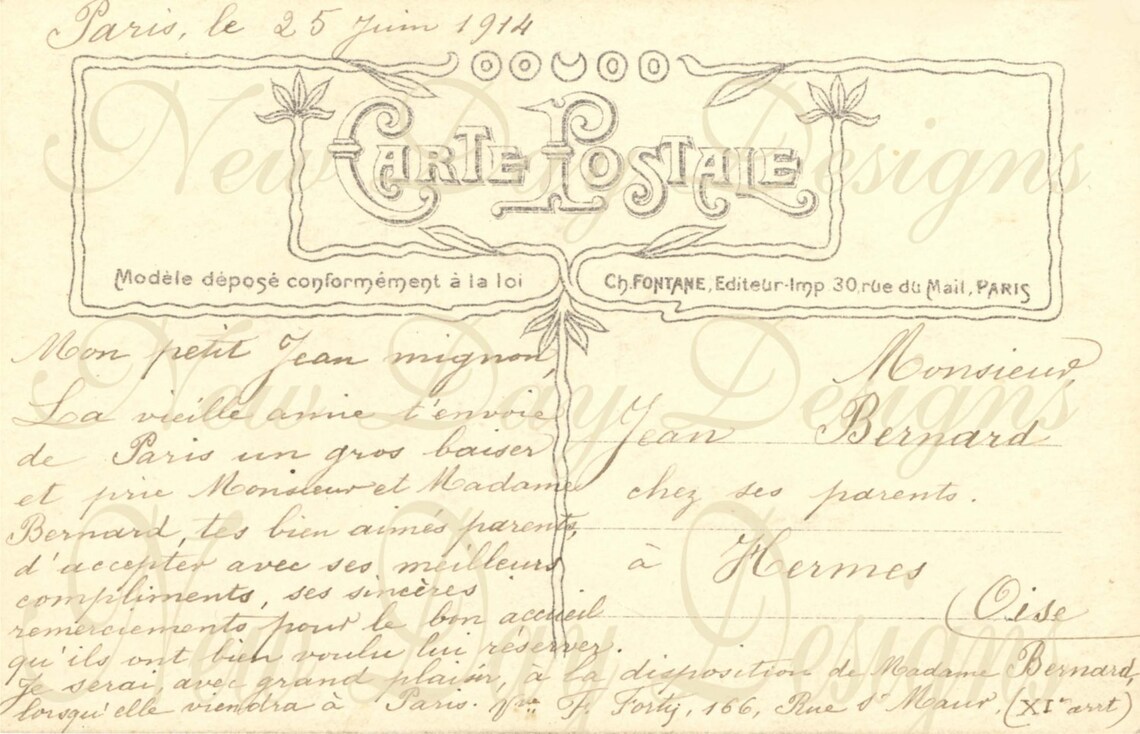 Paris, le 25 Juin 1914
CARTE POSTALE
Modèle déposé conformément à la loi
Ch. FONTANE, Editeur-Imp 30, rue du Mail, PARIS
Mon petit Jean mignon,
La vieille amie t'envoie
de Paris un gros baiser
et prie Monsieur et Madame
Bernard, tes bien aimés parents,
d'accepter avec ses meilleurs
compliments, ses sincères
remerciements pour le bon accueil
qu'ils ont bien voulu lui réserver.
Je serai, avec grand plaisir, à la disposition de Madame Bernard,
lorsqu'elle viendra à Paris. Vve F. Forty, 166, Rue St Maur, (XIe arrt)
Monsieur,
Jean Bernard
chez ses parents.
à Hermes
Oise
New Day Designs
New Day Designs
New Day Designs